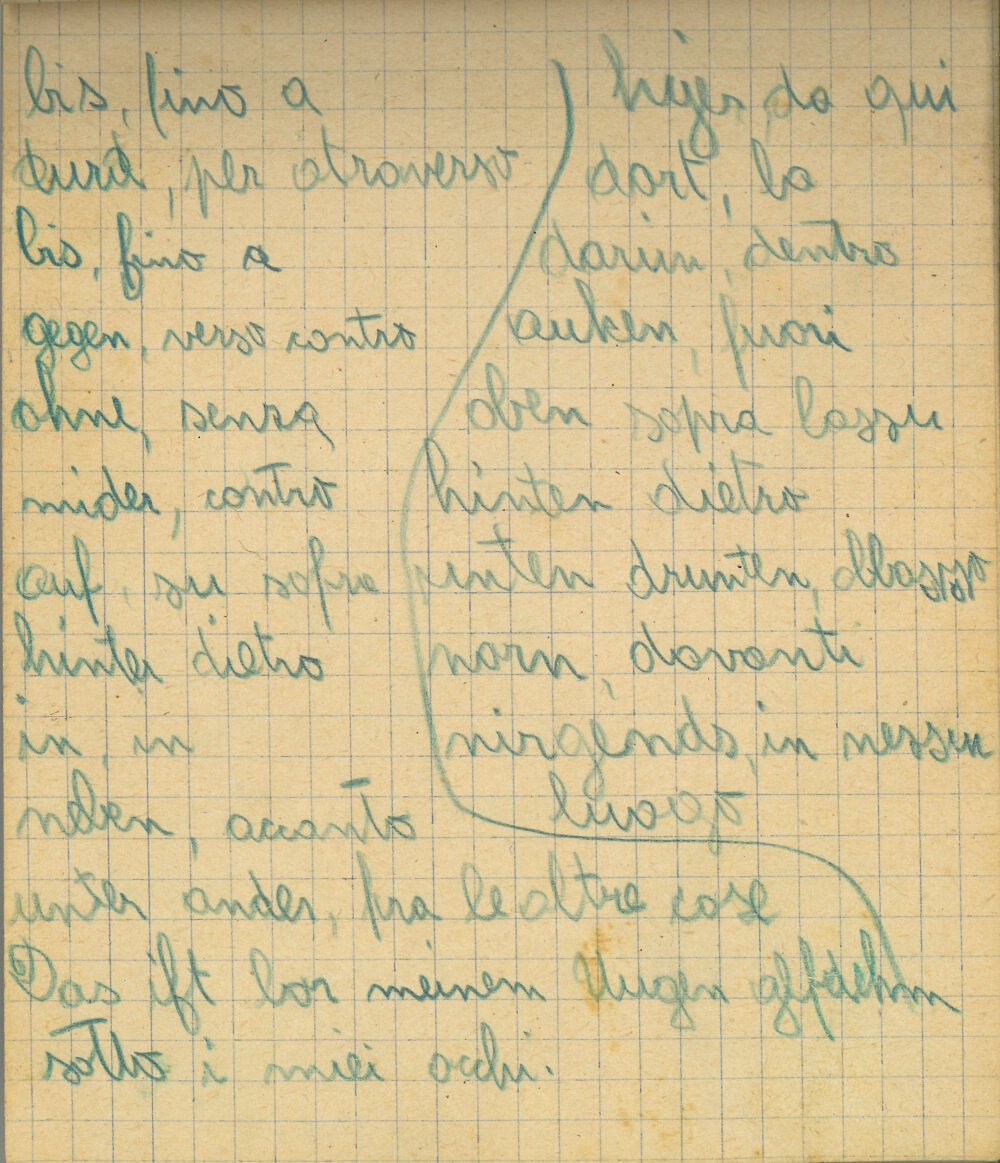 bis, fino a
durch, per atraverso
bis, fino a
gegen, verso contro
ohne, senza
mider, contro
auf, su sopra
hinter dietro
in, in
neben, accanto
unter ander, fra le altre cose
Das ift vor meinem Augen
sotto i miei occhi.
da qui
dort, la
darin, dentro
auken, fuori
oben sopra lassu
hinten dietro
unten drunten, abbasso
vorn, davanti
nirgends, in nessun
luogo